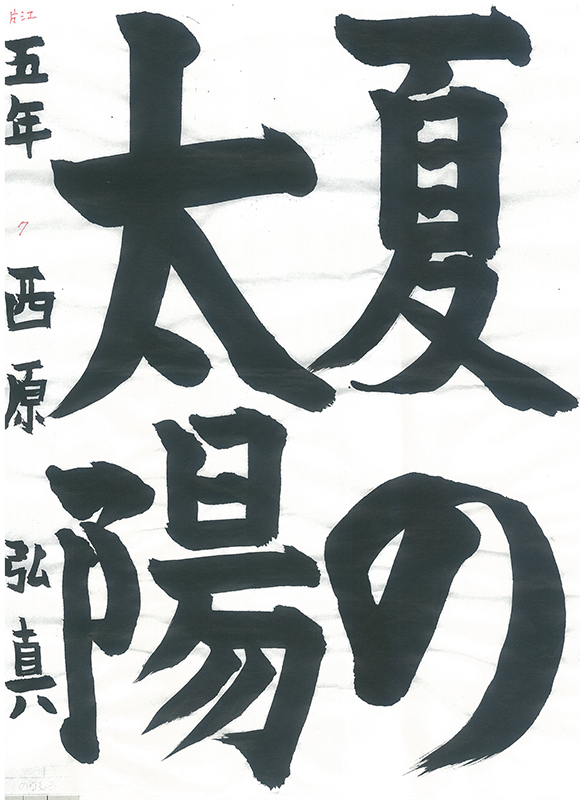 夏の
太陽
片江
五年 ク 西原 弘真